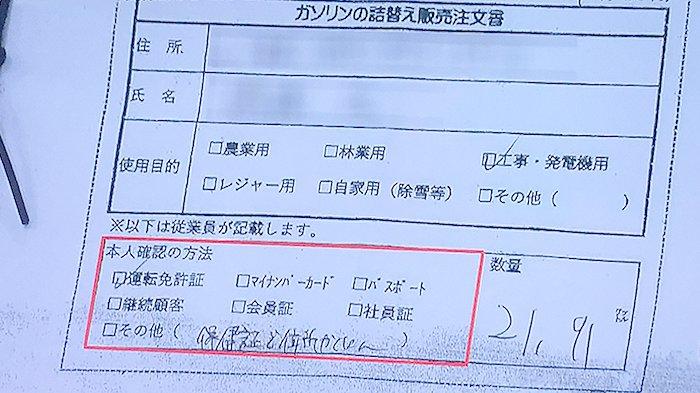 ガソリンの詰替え販売注文書
住所
氏名
使用目的
□農業用 □林業用 ☑工事・発電機用
□レジャー用 □自家用(除雪等) □その他( )
※以下は従業員が記載します。
本人確認の方法 数量
☑運転免許証 □マイナンバーカード □パスポート
□継続顧客 □会員証 □社員証
□その他( 保健証と住所かくにん )
21.91 ㍑